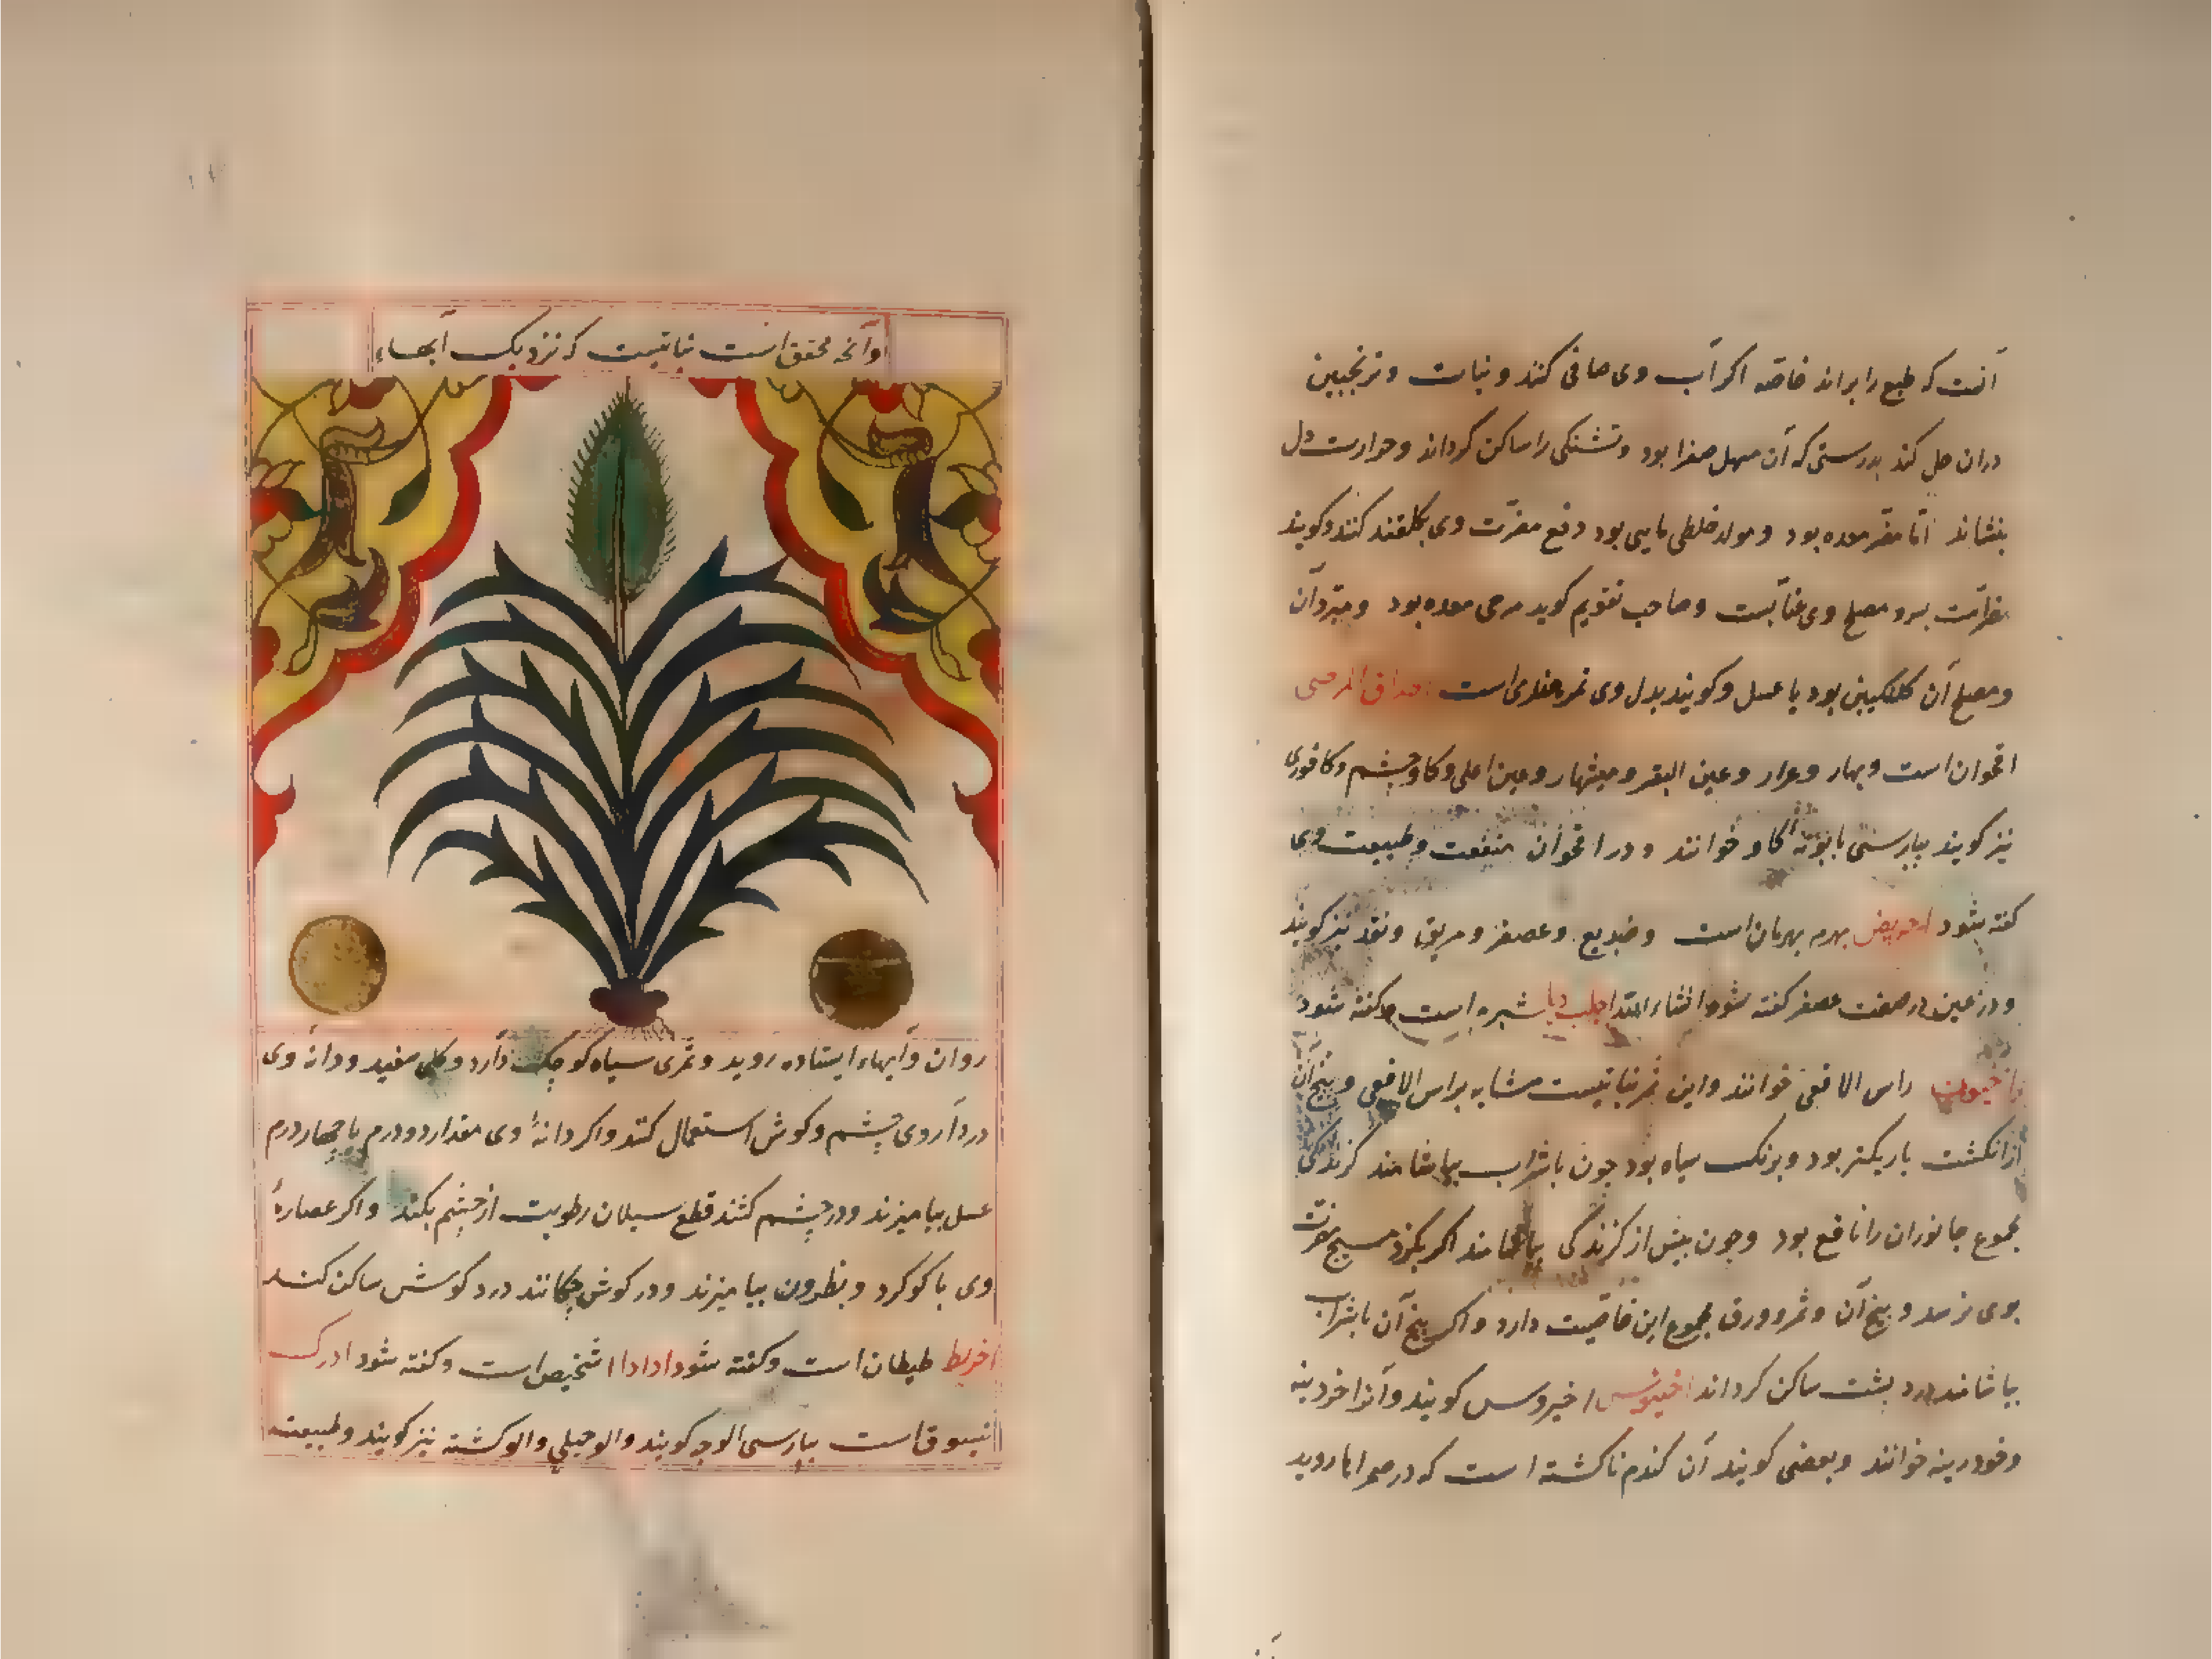 آنست که طبع را براند خاصه اکر آب وی صافی کنند و نبات و ترنجبین
دران حل کند بدرستی که آن مسهل صفرا بود و تشنکی را ساکن کرداند و حرارت دل
بنشاند اما مضر معده بود و مولد خلطی مایی بود دفع مضرت وی بکلقند کنند و کویند
مضرات بسرد مصلح وی عنابست و صاحب تقویم کوید مرخی معده بود و مبرد آن
و مصلح آن کلنکبین بود یا عسل و کویند بدل وی تمر هندی است احداق المرضی
اقحوان است و بهار و عرار و عین البقر و عین اعلی و کاوچشم و کافوری
نیز کویند بپارسی بابونهٔ کاو خوانند و در اقحوان منفعت و طبیعت وی
کفته شود احریض بهرمه بهرمان است و عصفر و مریق و نقد نیز کویند
و در عین در صفت عصفر کفته شود انشاء الله شبرم است و کفته شود
اخیون راس الافعی خوانند و این ثمر نباتیست مشابه براس الافعی و بیخ آن
از انکشت باریکتر بود و برنک سیاه بود چون با شراب بیاشامند کزندکی
مجموع جانوران را نافع بود و چون پیش از کزندکی بیاشامند اکر بکزد هیچ مضرت
بوی نرسد و بیخ آن و ثمر و ورق مجموع این خاصیت دارد و اکر بیخ آن با شراب
بیاشامند درد پشت ساکن کرداند اخینوس اخیروس کویند و آنرا خودرینه
و خودرینه خوانند و بعضی کویند آن کندم ناکشته است که در صحراها روید
و آنچه محقق است نباتیست که نزدیک آبهاء
روان و آبهاء ایستاده روید و ثمری سیاه کوچک دارد و کلی سفید و دانه وی
در داروی چشم و کوش استعمال کنند و اکر دانهٔ وی مقدار دو درم با چهار درم
عسل بیامیزند و در چشم کنند قطع سیلان رطوبت از چشم بکند و اکر عصارهٔ
وی با کوکرد و نطرون بیامیزند و در کوش چکانند درد کوش ساکن کند
اخریط طیطان است و کفته شود ادادا اشخیص است و کفته شود ادرک
است بپارسی الوجه کویند و الو جبلی و الو کشته نیز کویند و طبیعت